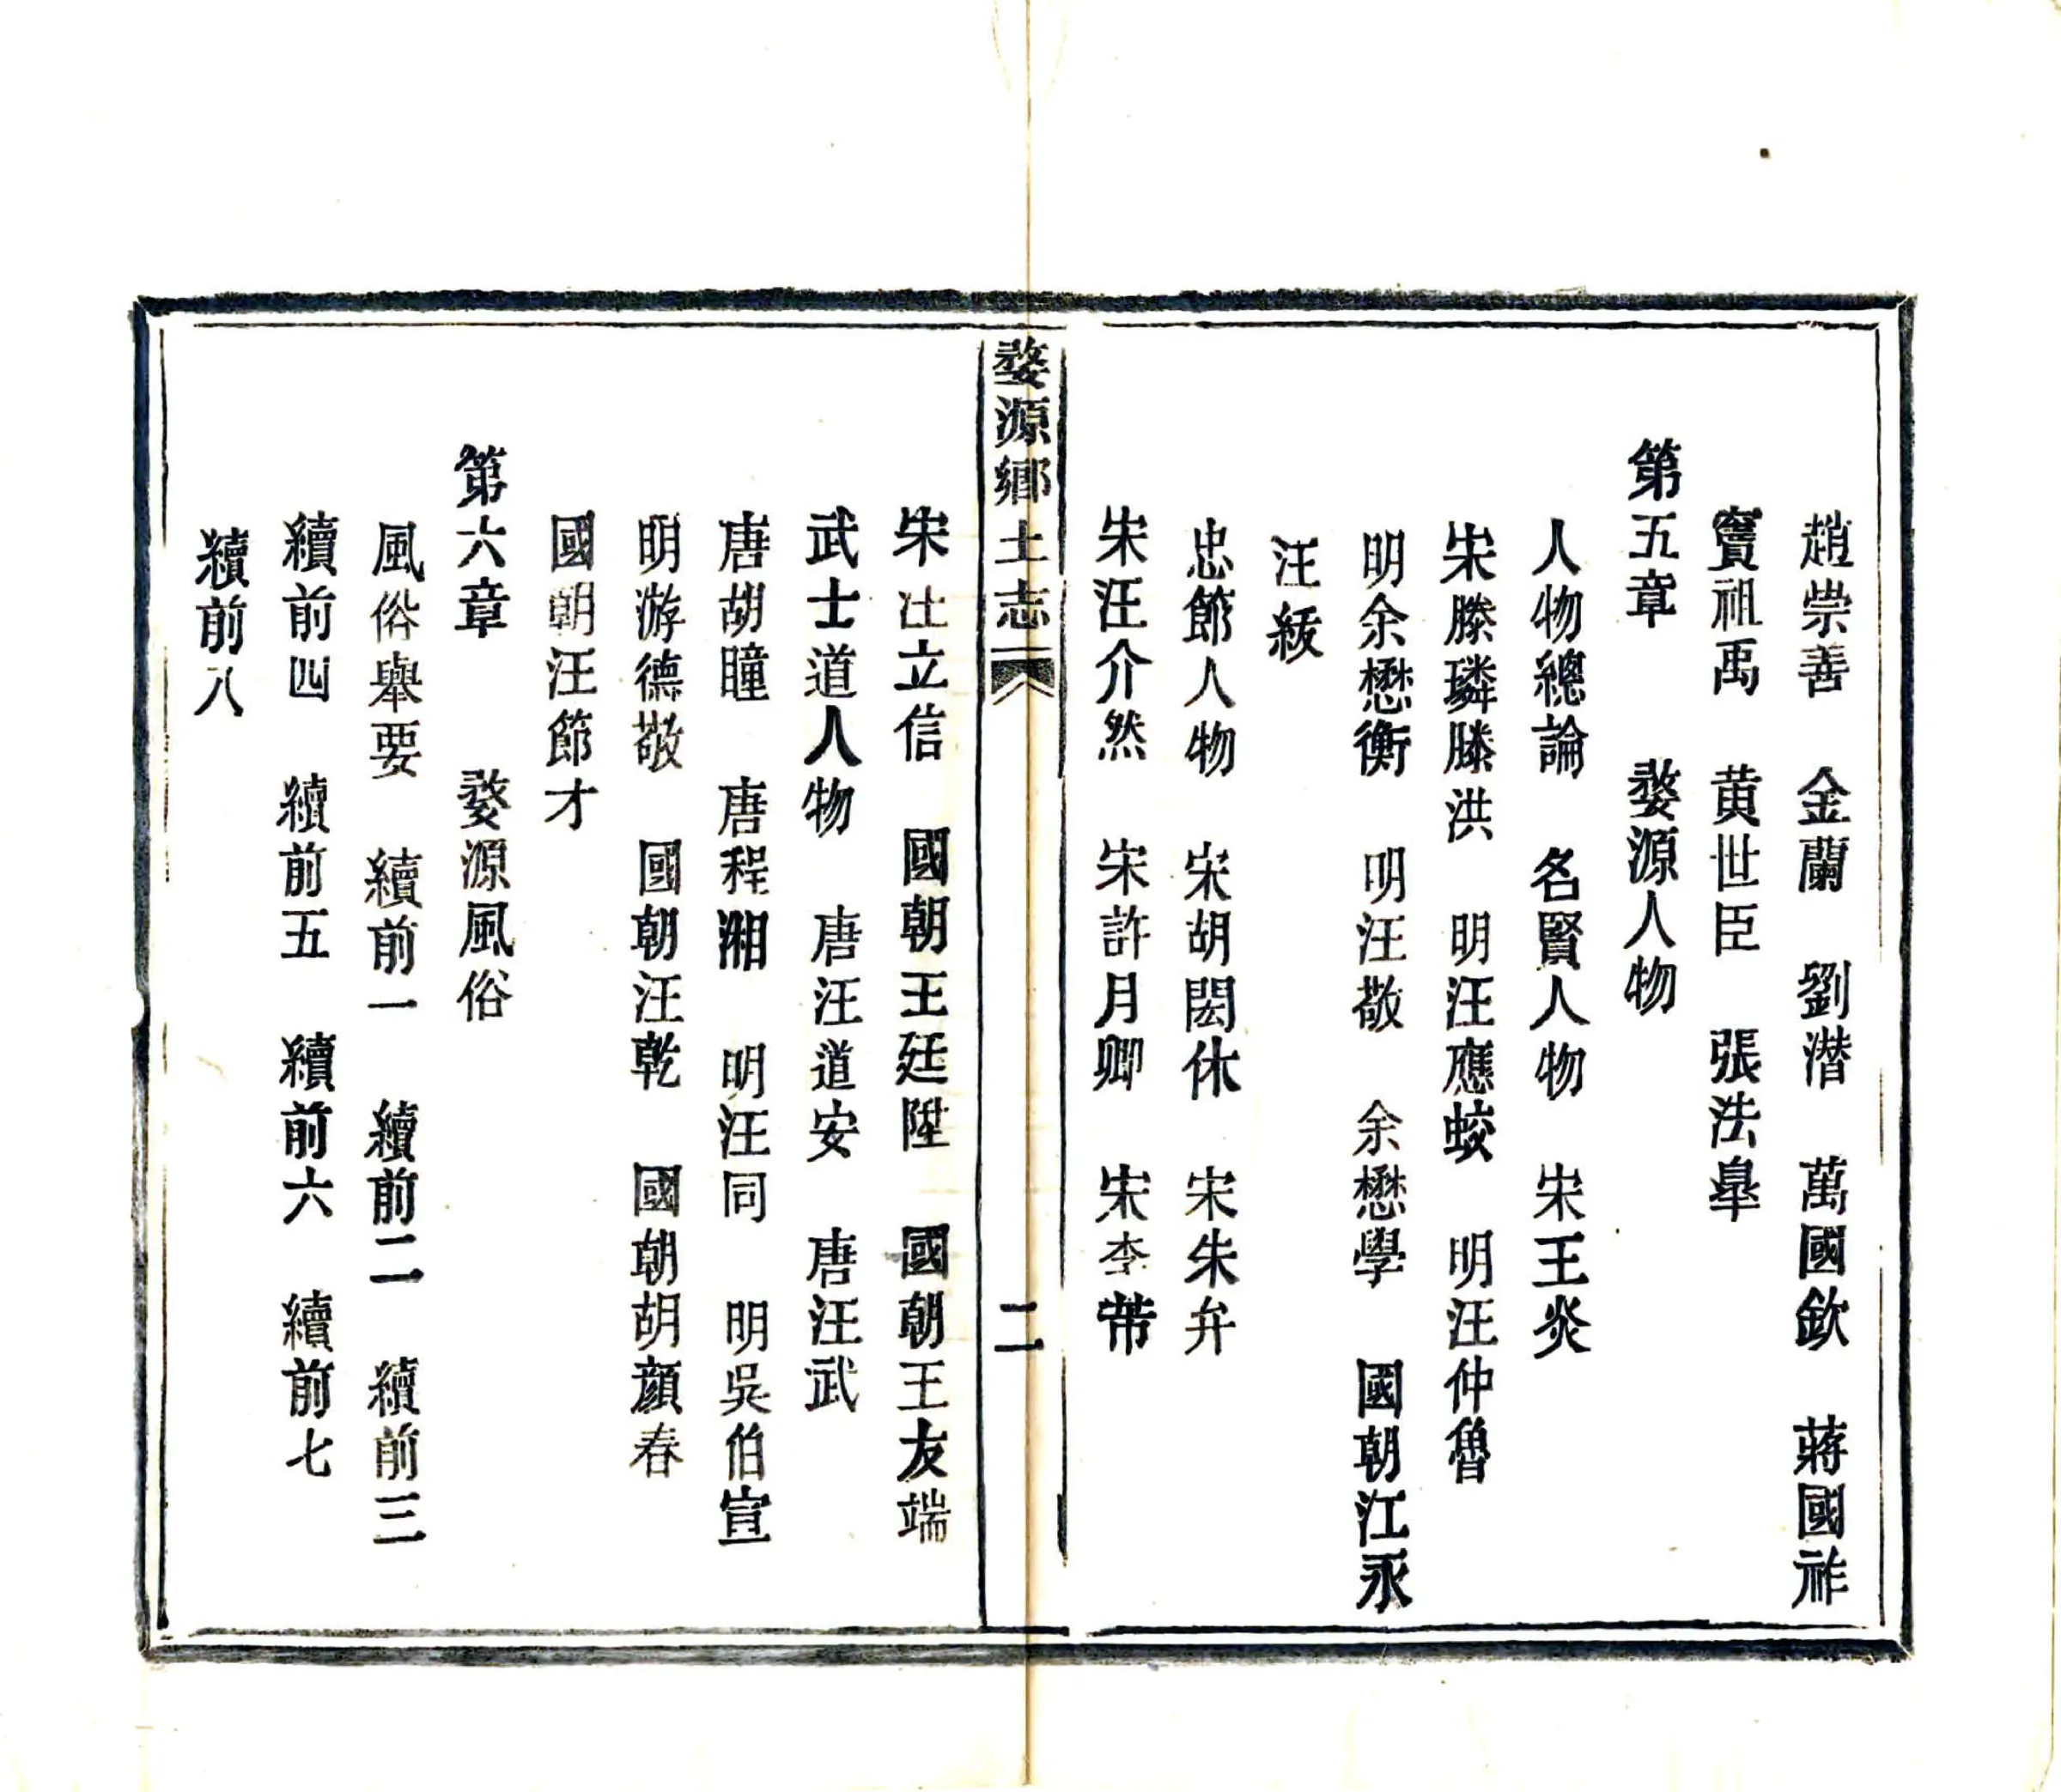 趙崇善　金蘭　劉潛　萬國欽　蔣國祚
竇祖禹　黄世臣　張法臯
第五章　婺源人物
人物總論　名賢人物　宋王炎
宋滕璘滕洪　明汪應蛟　明汪仲魯
明余懋衡　明汪敬　余懋學　國朝江永
汪紱
忠節人物　宋胡閎休　宋朱弁
宋汪介然　宋許月卿　宋李芾
婺源鄉土志　二
宋汪立信　國朝王廷陞　國朝王友端
武士道人物　唐汪道安　唐汪武
唐胡瞳　唐程湘　明汪同　明吳伯宣
明游德敬　國朝汪乾　國朝胡顔春
國朝汪節才
第六章　婺源風俗
風俗舉要　續前一　續前二　續前三
續前四　續前五　續前六　續前七
續前八